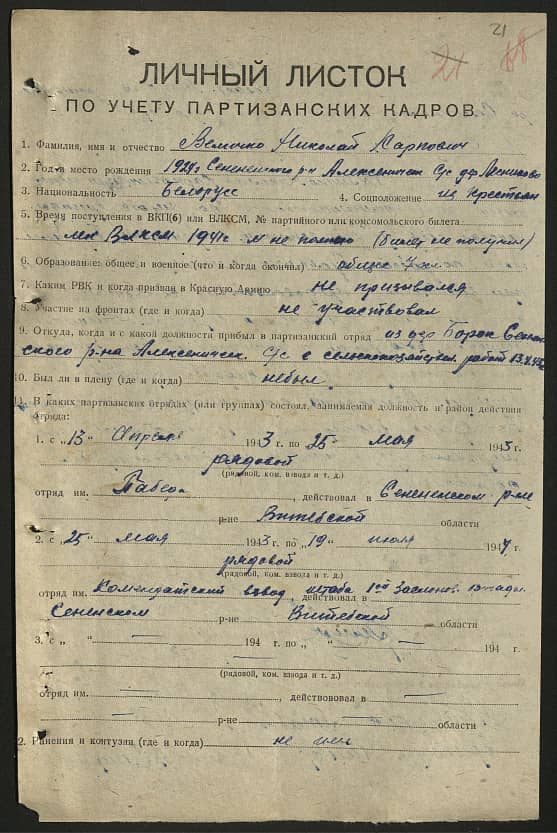 21
21
ЛИЧНЫЙ ЛИСТОК
ПО УЧЕТУ ПАРТИЗАНСКИХ КАДРОВ
1. Фамилия, имя и отчество Николай Карпович
2. Год и место рождения Сенненского р-н Алексеничи С/с д.
3. Национальность Белорусс 4. Соцположение из крестьян
5. Время поступления в ВКП(б) или ВЛКСМ, № партийного или комсомольского билета
ВЛКСМ 1941г № не помню (билет не получил)
6. Образование: общее и военное (что и когда окончил) общее 7 кл
7. Каким РВК и когда призван в Красную Армию не призывался
8. Участие на фронтах (где и когда) не участвовал
9. Откуда, когда и с какой должности прибыл в партизанский отряд из дер Сенен
ского р-на Алексенич. С/с с работ
10. Был ли в плену (где и когда) небыл
11. В каких партизанских отрядах (или группах) состоял, занимаемая должность и район действия
отряда:
1. с „13" Апреля 1943 г. по „25" мая 1943 г.
рядовой
(рядовой, ком. взвода и т. д.)
отряд им. , действовал в Сенненском р-не
р-не Витебской области
2. с „25" мая 1943 г. по „19" июля 194 г.
рядовой
(рядовой, ком. взвода и т. д.)
отряд им. Комендатский взвод штаба 1ой , действовал в
Сененском р-не Витебской области
3. с „ — " 194 г. по „ — " — 194 г.
—
(рядовой, ком. взвода и т. д.)
отряд им. — , действововал в —
— р-не — области
2. Ранения и контузии (где и когда) не имел